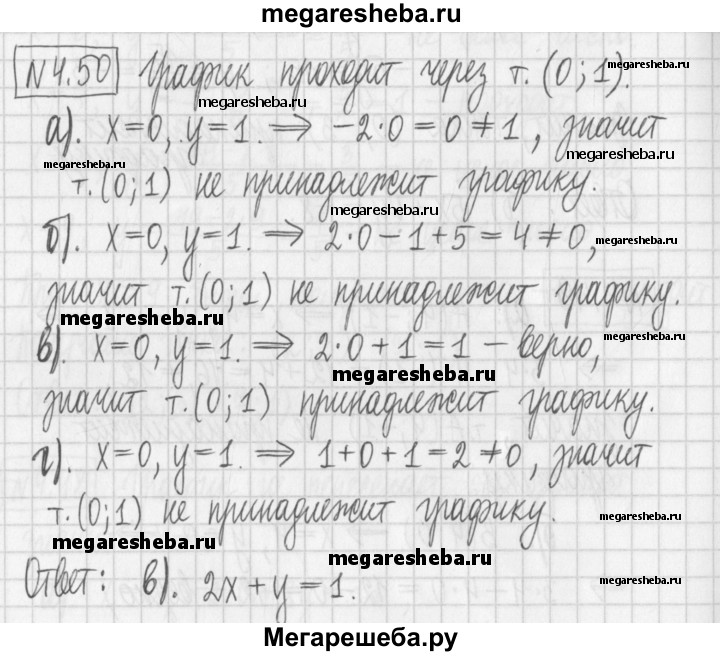 megaresheba.ru
N4.50 График проходит через т. (0;1).
megaresheba.ru
megaresheba.ru
а). x=0, y=1. ⇒ -2·0=0≠1, значит
megaresheba.ru
megaresheba.ru
т.(0;1) не принадлежит графику.
megaresheba.ru
б). x=0, y=1. ⇒ 2·0-1+5=4≠0,
megaresheba.ru
значит т.(0;1) не принадлежит графику.
megaresheba.ru
в). x=0, y=1. ⇒ 2·0+1=1 – верно,
megaresheba.ru
megaresheba.ru
значит т.(0;1) принадлежит графику.
г). x=0, y=1. ⇒ 1+0+1=2≠0, значит
т.(0;1) не принадлежит графику.
megaresheba.ru
megaresheba.ru
megaresheba.ru
Ответ: в). 2x+y=1.
megaresheba.ru
Мегарешеба.ру